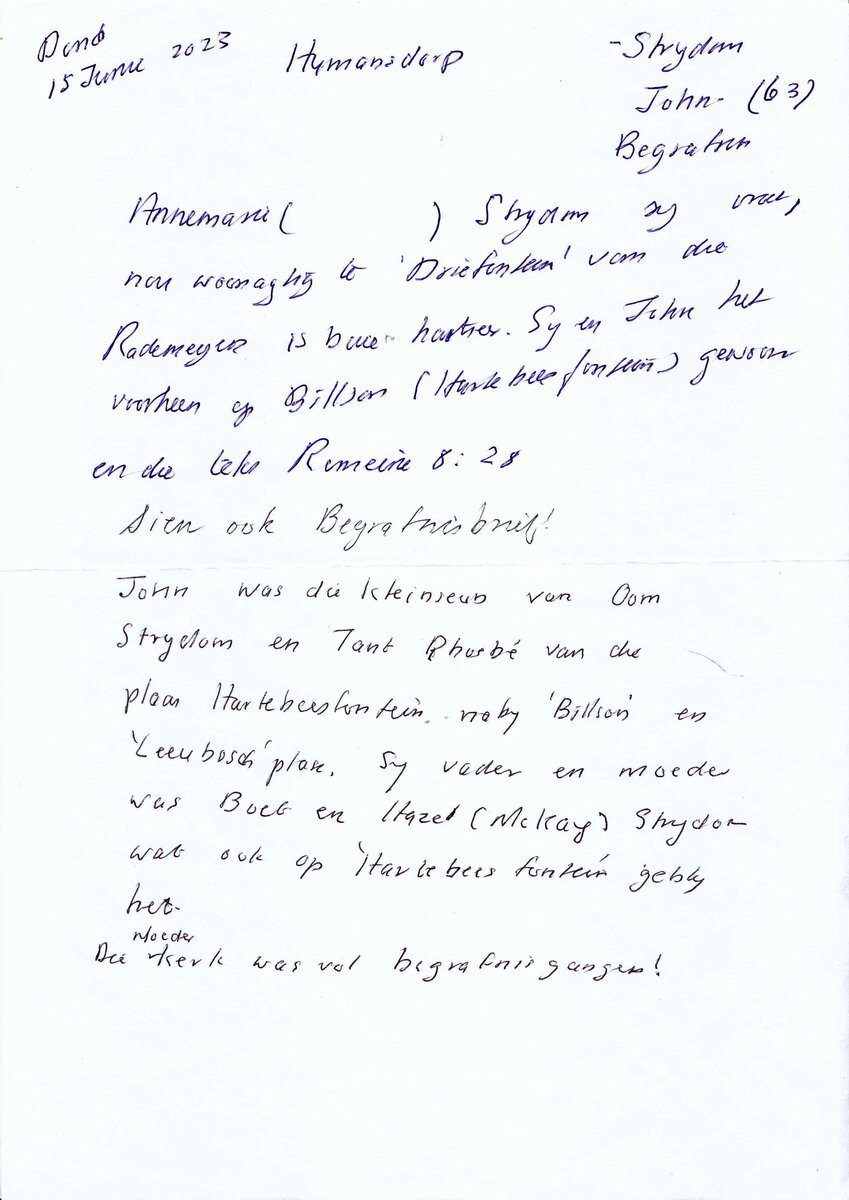 Dond
15 Junie 2023
Humansdorp
- Strydom
John - (63)
Begrafnis
Annemarie ( ) Strydom sy vrou,
nou woonagtig te 'Driefontein' van die
Rademeyers is baie hartseer. Sy en John het
voorheen op Billson (Hartebeesfontein) gewoon
en die teks Romeine 8:28
Sien ook Begrafnisbrief!
John was die kleinseun van Oom
Strydom en Tant Phoebé van die
plaas Hartebeesfontein naby 'Billson' en
'Leeubosch' plase. Sy vader en moeder
was Boet en Hazel (McKay) Strydom
wat ook op 'Hartebeesfontein' gebly
het.
Die Moeder kerk was vol begrafnisgangers!